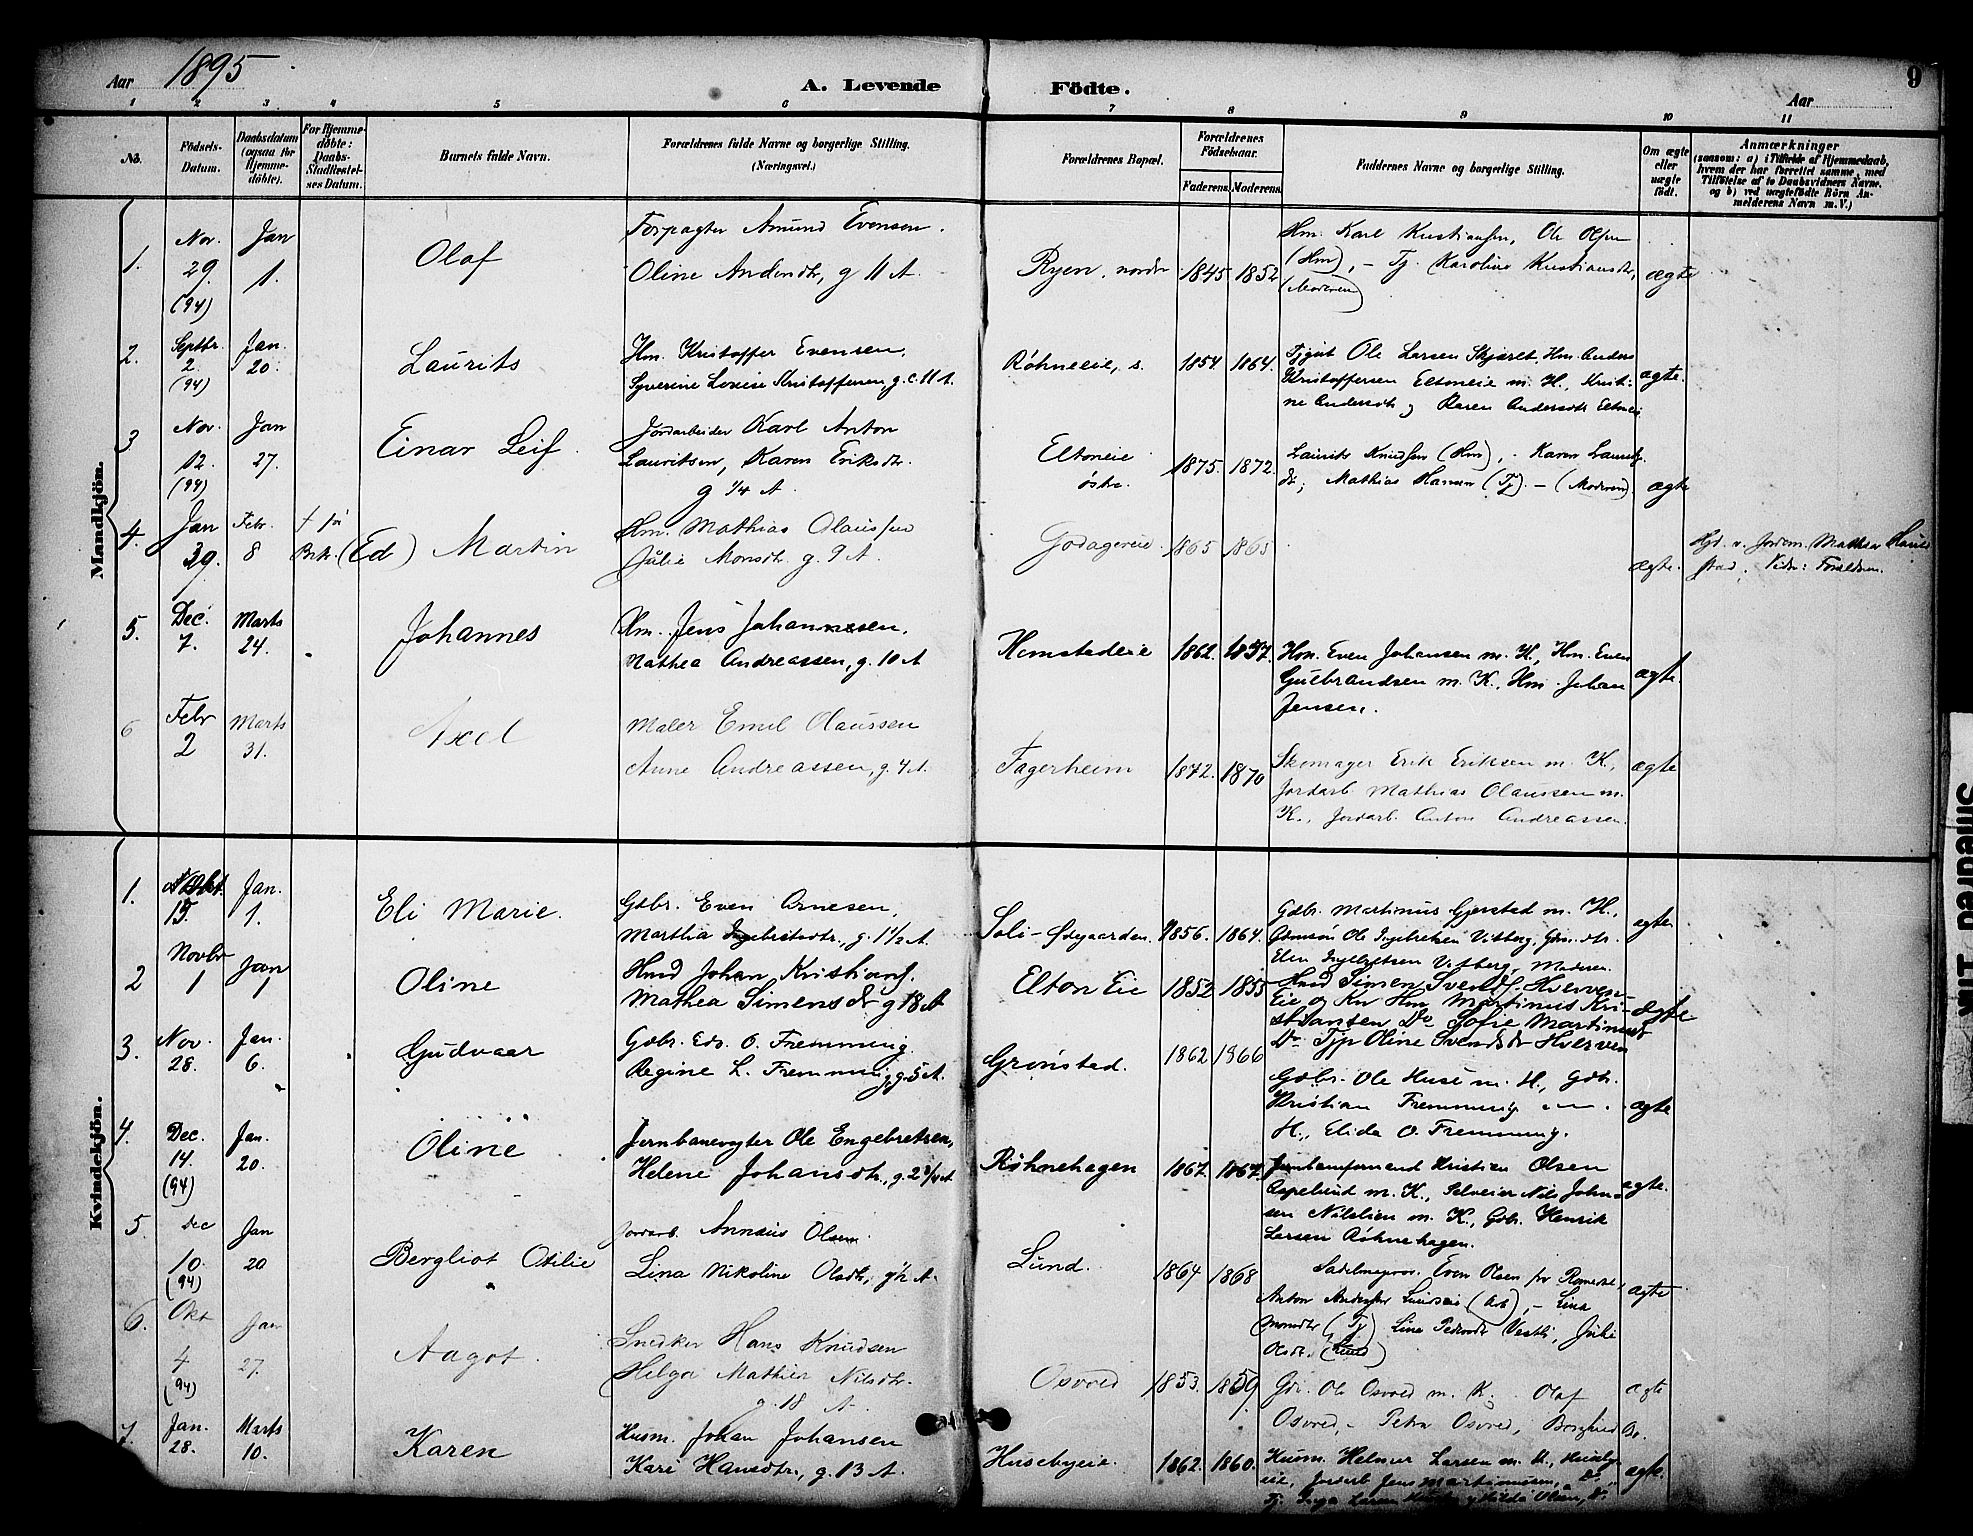 Aar 1895
A. Levende Födte.
Aar
9
1 2 3 4 5 6 7 8 9 10 11
No.
Födsels-
Datum.
Daabsdatum
(ogsaa for
Hjemme-
döbte).
For Hjemme-
döbte:
Daabs-
Stadfæstel-
ses Datum.
Barnets fulde Navn.
Forældrenes fulde Navne og borgerlige Stilling.
(Næringsvei.)
Forældrenes Bopæl.
Forældrenes
Födselsaar.
Faderens. Moderens.
Faddernes Navne og borgerlige Stilling.
Om ægte
eller
uægte
födt.
Anmærkninger
(saasom: a) i Tilfælde af Hjemmedaab,
hvem der har forrettet samme, med
Tilföielse af to Daabsvidners Navne,
og b) ved uægtefödte Börn An-
melderens Navn m.V.)
Mandkjön.
1.
Nov.
29.
(94)
Jan
1.
Olaf
Forpagter Amund Evensen.
Oline Andersdtr, g 11 A.
Ryen, nordre
1845 1852
Hm. Karl Kristiansen, Ole Olsen
(Hm), - Tj. Karoline Kristiansdtr,
(Moderen)
ægte
2.
Septbr.
2.
(94)
Jan.
20.
Laurits
Hm. Kristoffer Evensen,
Syverine Lovise Kristoffersen g. c. 11 A.
Røhneeie, s.
1854. 1864.
Tjgut Ole Larsen Skjæret, Hm. Anders
Kristoffersen Eltoneie m. H., Kristi-
ne Andersdtr og Karen Andersdtr Eltoneie
ægte.
3
Nov.
12.
(94)
Jan
27.
Einar Leif.
Jordarbeider Karl Anton
Lauritsen, Karen Eriksdtr.
g 1/4 A.
Eltoneie
østre.
1875. 1872.
Laurits Knudsen (Hm), - Karen Laurits-
dtr; Mathias Hansen (Tj). - (Moderen)
ægte
4.
Jan
30.
Febr.
8
(Ed) Martin
Hm. Mathias Olaussen
Julie Monsdtr. g. 9 A.
Godagereie.
1865 1865
ægte.
Hjd. v. Jordem. Mathea Hauer-
stad. Vidn: Forældrene.
5.
Dec.
7.
Marts
24.
Johannes
Hm. Jens Johannesen.
Mathea Andreassen, g. 10 A
Homstadeie
1862. 1857.
Hm. Even Johansen m. H., Hm. Even
Gulbrandsen m. K., Hm. Johan
Jensen.
ægte.
6
Febr
2
Marts
31.
Axel
Maler Emil Olaussen
Anne Andreassen, g. 4 A.
Fagerheim
1872. 1870
Skomager Erik Eriksen m. K.,
Jordarb Mathias Olaussen m.
K., Jordarb. Anton Andreassen.
ægte
Kvindekjön.
1.
15.
Jan.
1.
Eli Marie.
Gdbr. Even Arnesen,
Martha Ingebretsdtr., g. 1 1/2 A.
Soli-Ødegaarden.
1856. 1864.
Gdbr. Martinus Gjerstad m. H.,
Gdmsøn Ole Ingebretsen Vitberg, Gdm. dtr.
Elen Ingebretsen Vitberg, Moderen.
ægte
2
Novbr
1
Jan
1
Oline
Hmd Johan Kristians.
Mathea Simensdtr g 18 A
Elton Eie
1852 1855
Hmd Simen Svends. Hverven-
Eie og Kv Hm Martinus Kri-
stiansen Do Sofie Martinusdtr
Do Tjp Oline Svendsdtr Hverven
ægte
3.
Nov.
28.
Jan.
6.
Gudvaar
Gdbr. Edv. O. Fremming.
Regine L. Fremming, g. 5 A.
Grønstad.
1862 1866
Gdbr. Ole Huse m. H., Gdbr.
Kristian Fremming m.
H., Elida O. Fremming.
ægte
4.
Dec.
14.
(94)
Jan.
20.
Oline
Jernbanevogter Ole Engebretsen,
Helene Johansdtr., g. 2 3/4 A.
Røhnehagen
1867. 1867.
Jernbaneformand Kristian Olsen
Aspelund m. K., Selveier Nils Johan-
sen Nilslien m. K., Gdbr. Henrik
Larsen Røhnehagen.
ægte.
5.
Dec
10.
(94)
Jan
20
Bergliot Otilie
Jordarb. Annæus Olsen.
Lina Nikoline Olsdtr, g 1/2 A.
Lund.
1864 1868
Sadelmagersv. Even Olsen fra Romedal,
Anton Andersen Lundseie (Arb), - Lina
Monsdtr (Tj) Lina Pedersdtr Vestli, Julie
Olsdtr. (Lund)
ægte
6.
Okt
4
(94)
Jan
27.
Aagot.
Snedker Hans Knudsen
Helga Mathea Nilsdtr.
g. 18 A.
Osvold
1853. 1859.
Gdr. Ole Osvold m. K. Olaf
Osvold, Petra Osvold,
ægte
7.
Jan.
28.
Marts
10.
Karen
Husm. Johan Johansen
Kari Hansdtr., g. 13 A.
Husebyeie.
1862. 1860.
Husm. Helmer Larsen m. K., Huseby-
eie, Jordarb Jens Martinusen, Do
Tj. Inga Larsen Huseby og Hilda Olsen, Do.
ægte.